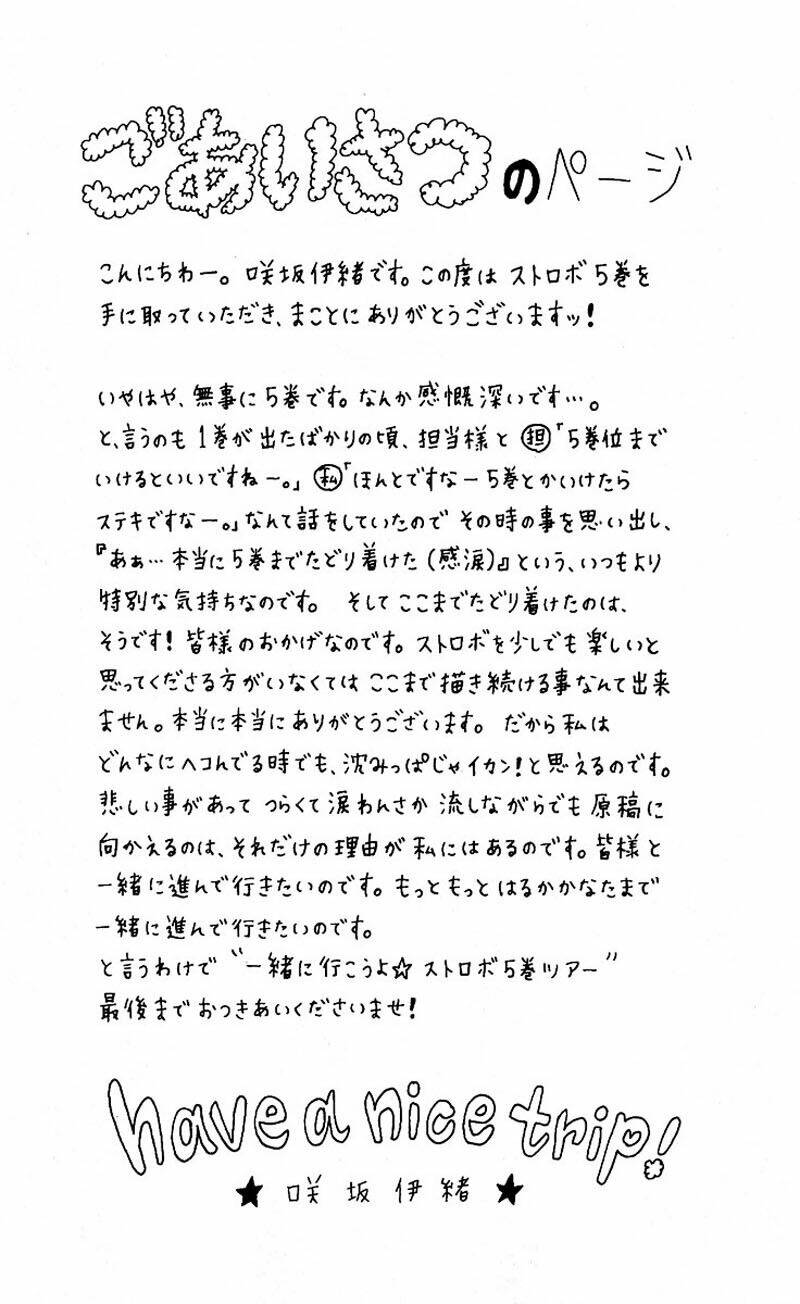 ごあいさつのページ
こんにちわー。咲坂伊緒です。この度は ストロボ5巻を
手に取っていただき、まことに ありがとうございますッ!
いやはや、無事に5巻です。なんか感慨深いです…。
と、言うのも 1巻が出たばかりの頃、担当様と 担「5巻位まで
いけるといいですねー。」 私「ほんとですなー5巻とかいけたら
ステキですなー。」なんて話をしていたので その時の事を思い出し、
『あぁ…本当に5巻までたどり着けた(感涙)』という、いつもより
特別な気持ちなのです。 そして ここまでたどり着けたのは、
そうです! 皆様のおかげなのです。ストロボを少しでも 楽しいと
思ってくださる方がいなくては ここまで描き続ける事なんて出来
ません。本当に本当にありがとうございます。 だから私は
どんなにヘコんでる時でも、沈みっぱじゃイカン!と思えるのです。
悲しい事があって つらくて涙わんさか 流しながらでも 原稿に
向かえるのは、それだけの理由が 私にはあるのです。皆様と
一緒に進んで行きたいのです。もっともっと はるかかなたまで
一緒に進んで行きたいのです。
と言うわけで "一緒に行こうよ☆ ストロボ5巻ツアー"
最後まで おつきあいくださいませ!
have a nice trip!
★ 咲坂伊緒 ★